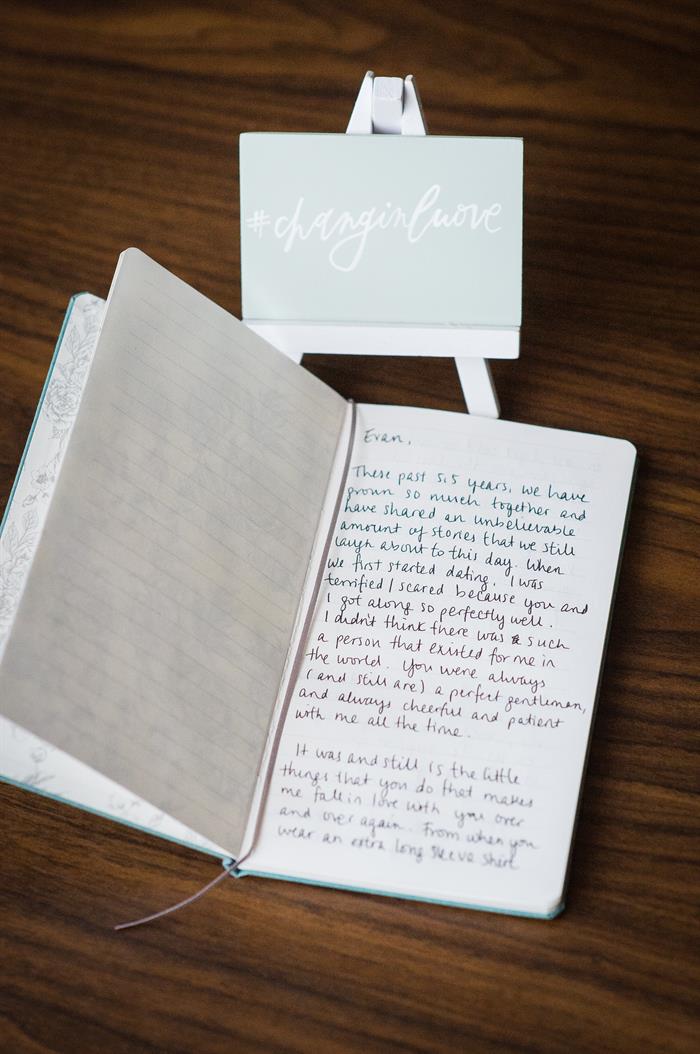 #changinluove
Evan,
These past 5.5 years, we have
grown so much together and
have shared an unbelievable
amount of stories that we still
laugh about to this day. When
we first started dating, I was
terrified/scared because you and
I got along so perfectly well.
I didn't think there was a such
a person that existed for me in
the world. You were always
(and still are) a perfect gentleman,
and always cheerful and patient
with me all the time.
It was and still is the little
things that you do that makes
me fall in love with you over
and over again. From when you
wear an extra long sleeve shirt